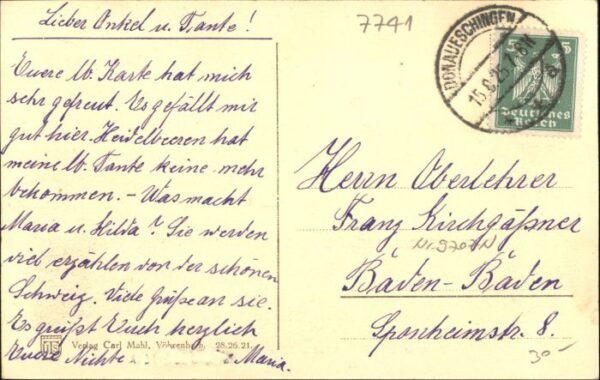 Lieber Onkel u. Tante!
Euere lb. Karte hat mich
sehr gefreut. Es gefällt mir
gut hier. Heidelbeeren hat
meine lb. Tante keine mehr
bekommen. - Was macht
Maria u. Hilda? Sie werden
viel erzählen von der schönen
Schweiz. Viele Grüße an sie.
Es grüßt Euch herzlich
Euere Nichte Maria.
Verlag Carl Mahl, Vöhrenbach. 28.26.21.
7741
DONAUESCHINGEN
5 5
Deutsches
Reich
Herrn Oberlehrer
Franz Kirchgäßner
Baden-Baden
Sponheimstr. 8.
30-